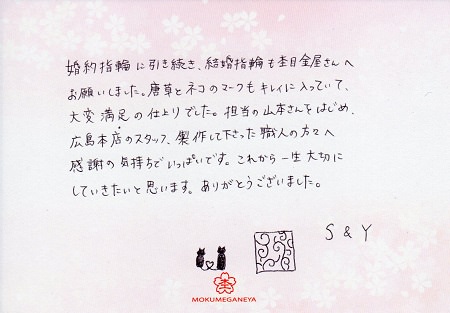 婚約指輪に引き続き、結婚指輪も杢目金屋さんへ
お願いしました。唐草とネコのマークもキレイに入っていて、
大変満足の仕上りでした。担当の山本さんをはじめ、
広島本店のスタッフ、製作して下さった職人の方々へ
感謝の気持ちでいっぱいです。これから一生大切に
していきたいと思います。ありがとうございました。
S & Y
MOKUMEGANEYA